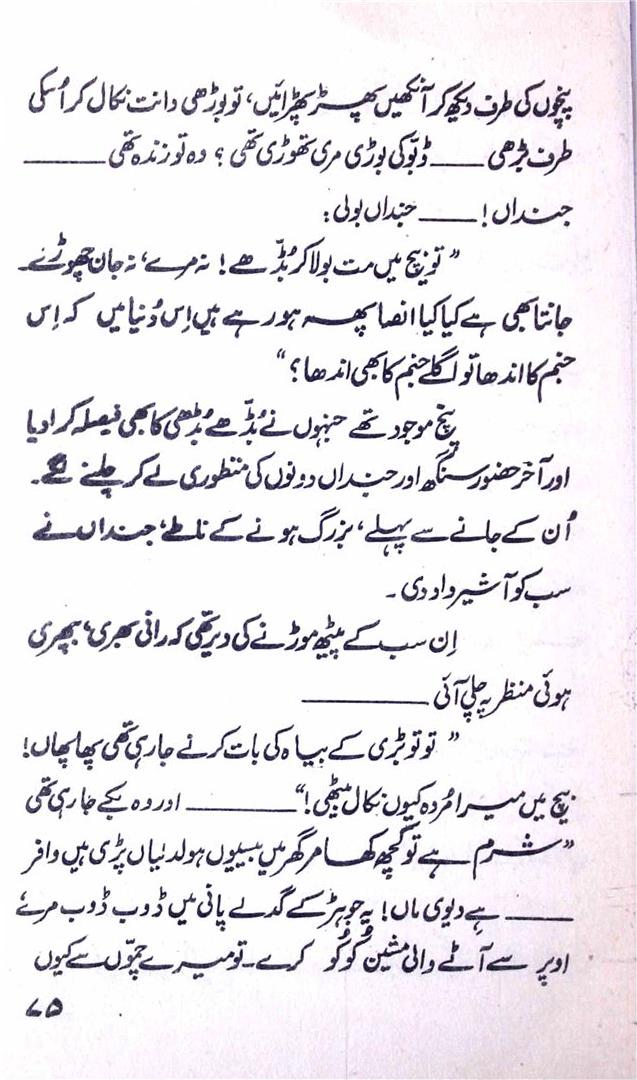 پنچوں کی طرف دیکھ کر آنکھیں پھڑپھڑائیں، تو بوڑھی دانت نکال کر اُسکی
طرف بڑھی ـــــــ ڈبّو کی بوڑی مری تھوڑی تھی ؟ وہ تو زندہ تھی ـــــــ
جنداں ! ـــــــ جنداں بولی :
" تو بیچ میں مت بولا کر بُڈّھے ! نہ مرے، نہ جان چھوڑے۔
جانتا بھی ہے کیا کیا انصاپھ ہو رہے ہیں اِس دُنیا میں کہ اِس
جنم کا اندھا تو اگلے جنم کا بھی اندھا ؟ "
پنچ موجود تھے جنہوں نے بُڈّھے بُڈّھی کا بھی فیصلہ کرا دیا
اور آخر حضور سنگھ اور جنداں دونوں کی منظوری لے کر چلنے لگے۔
اُن کے جانے سے پہلے، بزرگ ہونے کے ناطے، جنداں نے
سب کو آشیرواد دی ۔
اِن سب کے پیٹھ موڑنے کی دیر تھی کہ رانی بھری، بپھری
ہوئی منظر پہ چلی آئی ـــــــ
" تو تو بڑی کے بیاہ کی بات کرنے جا رہی تھی پھاپھاں !
بیچ میں میرا مُردہ کیوں نکال بیٹھی !" ـــــــ اور وہ بکے جا رہی تھی
" شرم ہے تو کچھ کھا مر گھر میں بیسیوں ہولدنیاں پڑی ہیں وافر
ـــــــ ہے دیوی ماں ! یہ جوہڑ کے گدلے پانی میں ڈوب ڈوب مرے
اوپر سے آٹے والی مشین کُوکُو کرے ۔ تو میرے چھوّں سے کیوں
۷۵